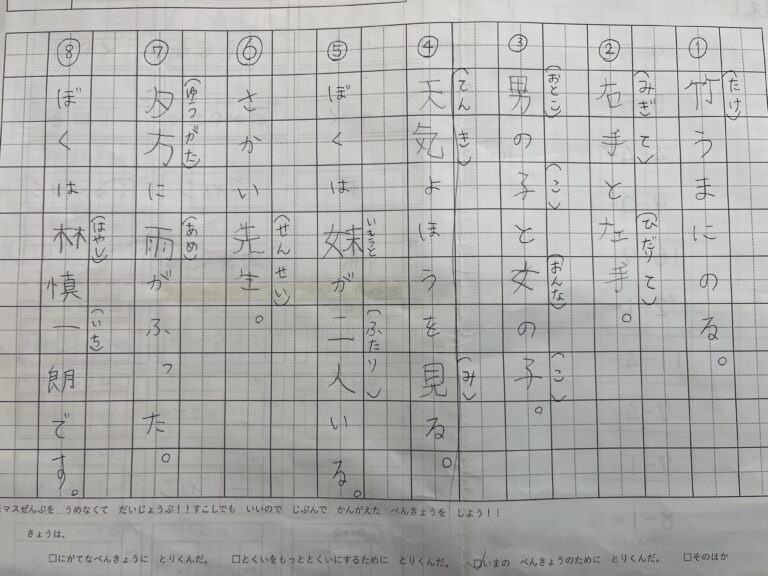 ①竹うまにのる。
（たけ）
②右手と左手。
（みぎ）（て）（ひだり）（て）
③男の子と女の子。
（おとこ）（こ）（おんな）（こ）
④天気よほうを見る。
（てんき）（み）
⑤ぼくは妹が二人いる。
いもうと（ふたり）
⑥さかい先生。
（せんせい）
⑦夕方に雨がふった。
（ゆうがた）（あめ）
⑧ぼくは林慎一朗です。
（はやし）（いち）
マスぜんぶを うめなくて だいじょうぶ！！すこしでも いいので じぶんで かんがえた べんきょうを しよう！！
きょうは、
□にがてなべんきょうに とりくんだ。 □とくいをもっととくいにするために とりくんだ。 ☑いまの べんきょうのために とりくんだ。 □そのほか
8-1=7